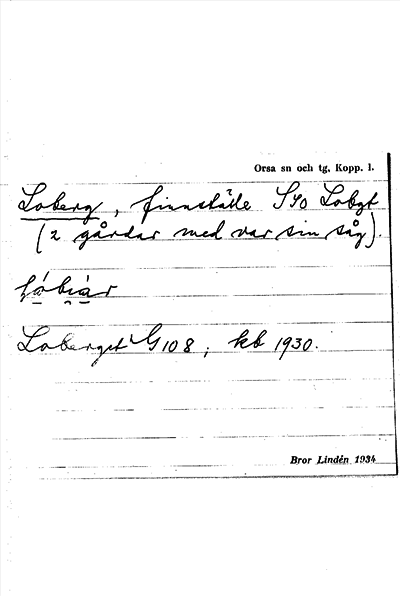 Orsa sn och tg, Kopp. l.
Loberg, finnställe S Lobgt
(2 gårdar med var sin såg).
Loberget G 108; kb 1930.
Bror Lindén 1934